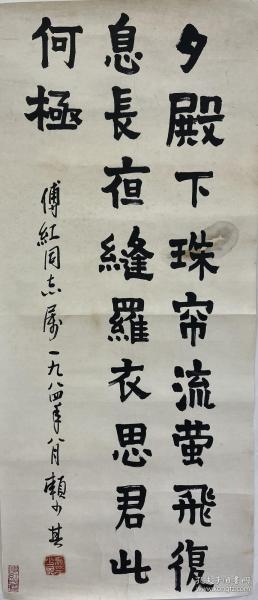 夕殿下珠帘流萤飛復
息長夜縫羅衣思君此
何極
傅紅同志属一九八四年八月賴少其